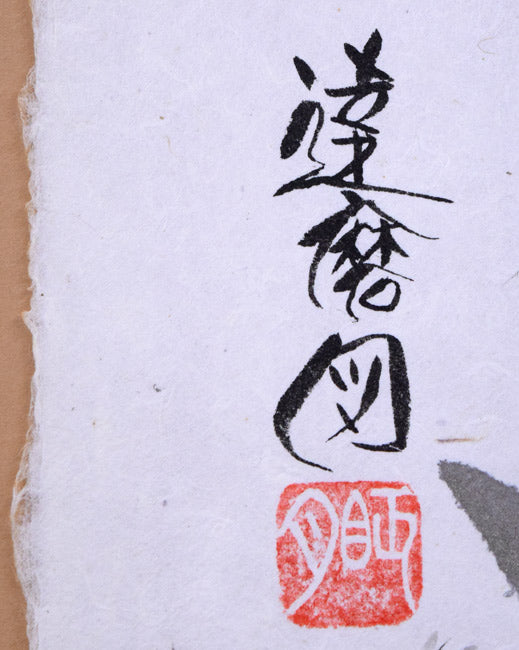 達磨図